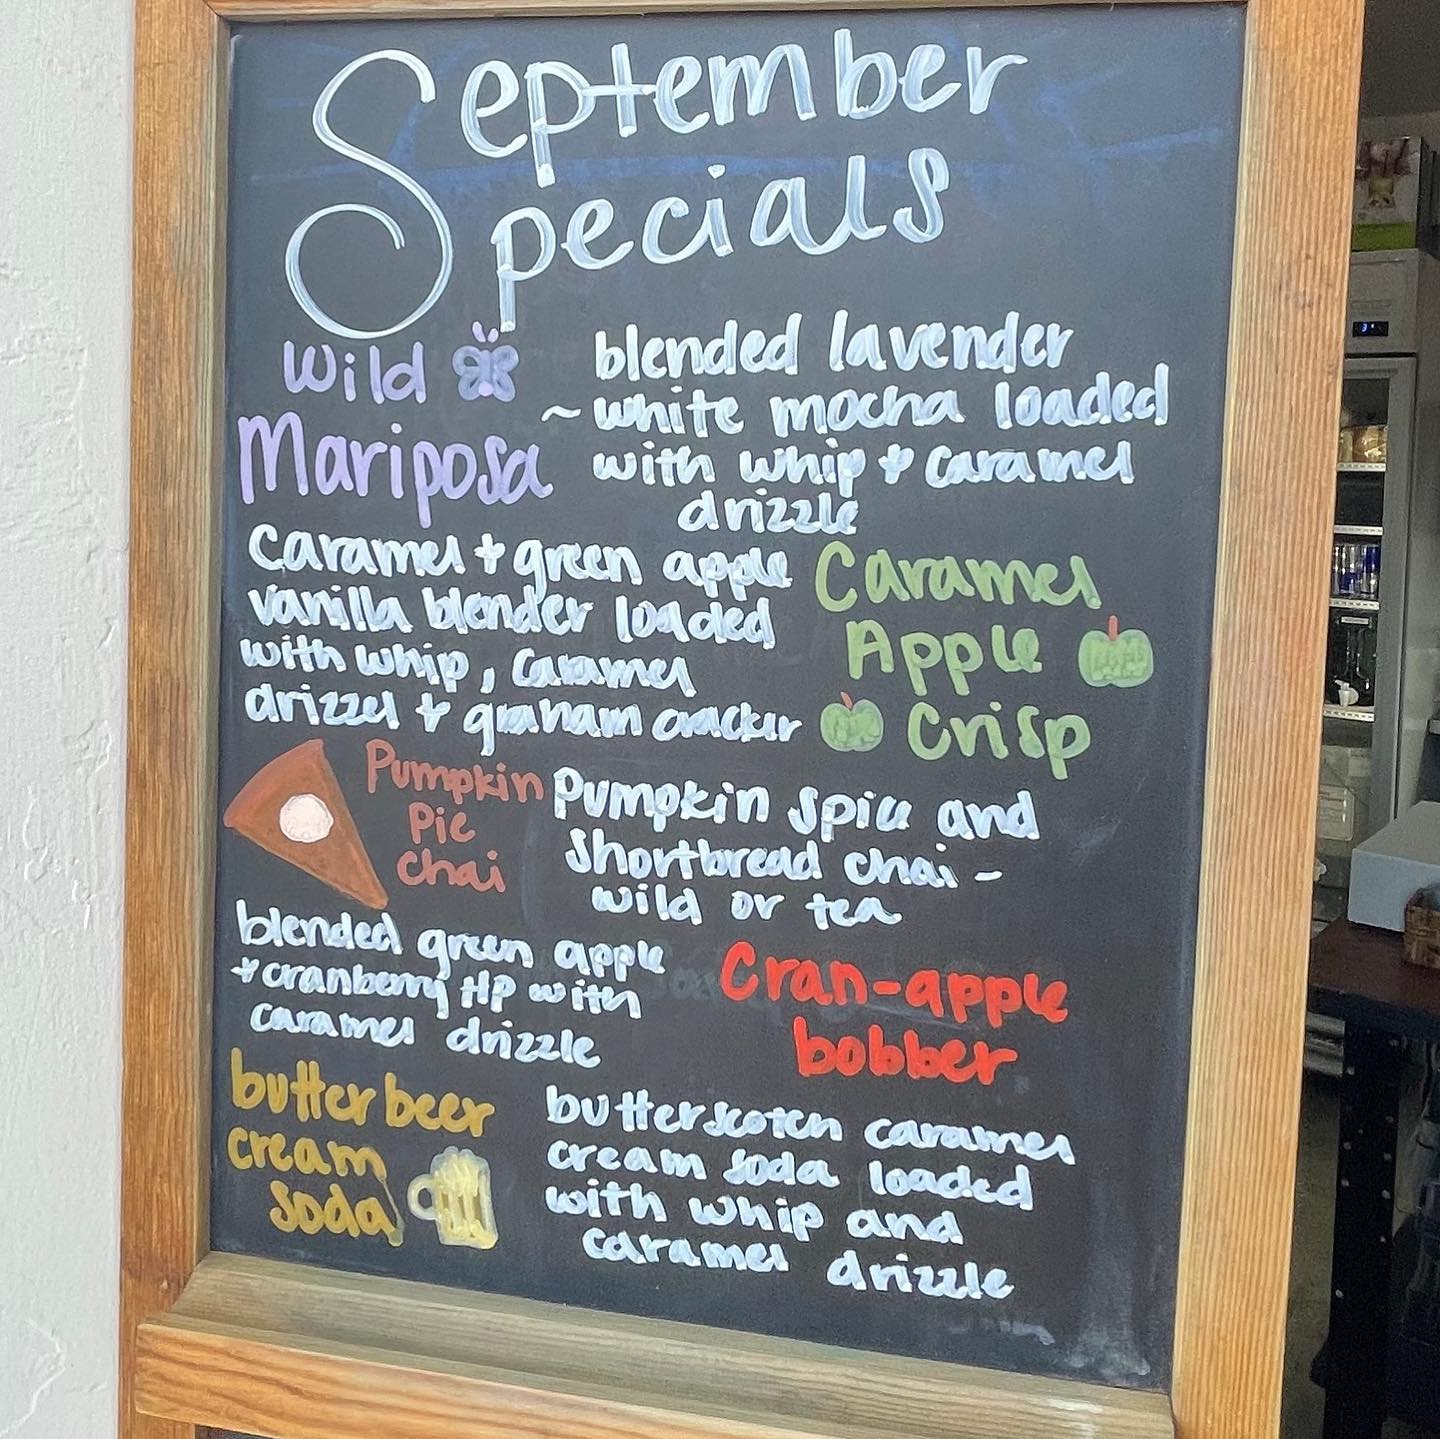 September
Specials
Wild
Mariposa
blended lavender
~ white mocha loaded
with whip + caramel
drizzle
Caramel + green apple
vanilla blender loaded
with whip, caramel
drizzel + graham cracker
Caramel
Apple
Crisp
Pumpkin
Pie
Chai
Pumpkin spice and
shortbread chai -
wild or tea
blended green apple
+ cranberry HP with
caramel drizzle
Cran-apple
bobber
butter beer
cream
soda
butterscotch caramel
cream soda loaded
with whip and
caramel drizzle